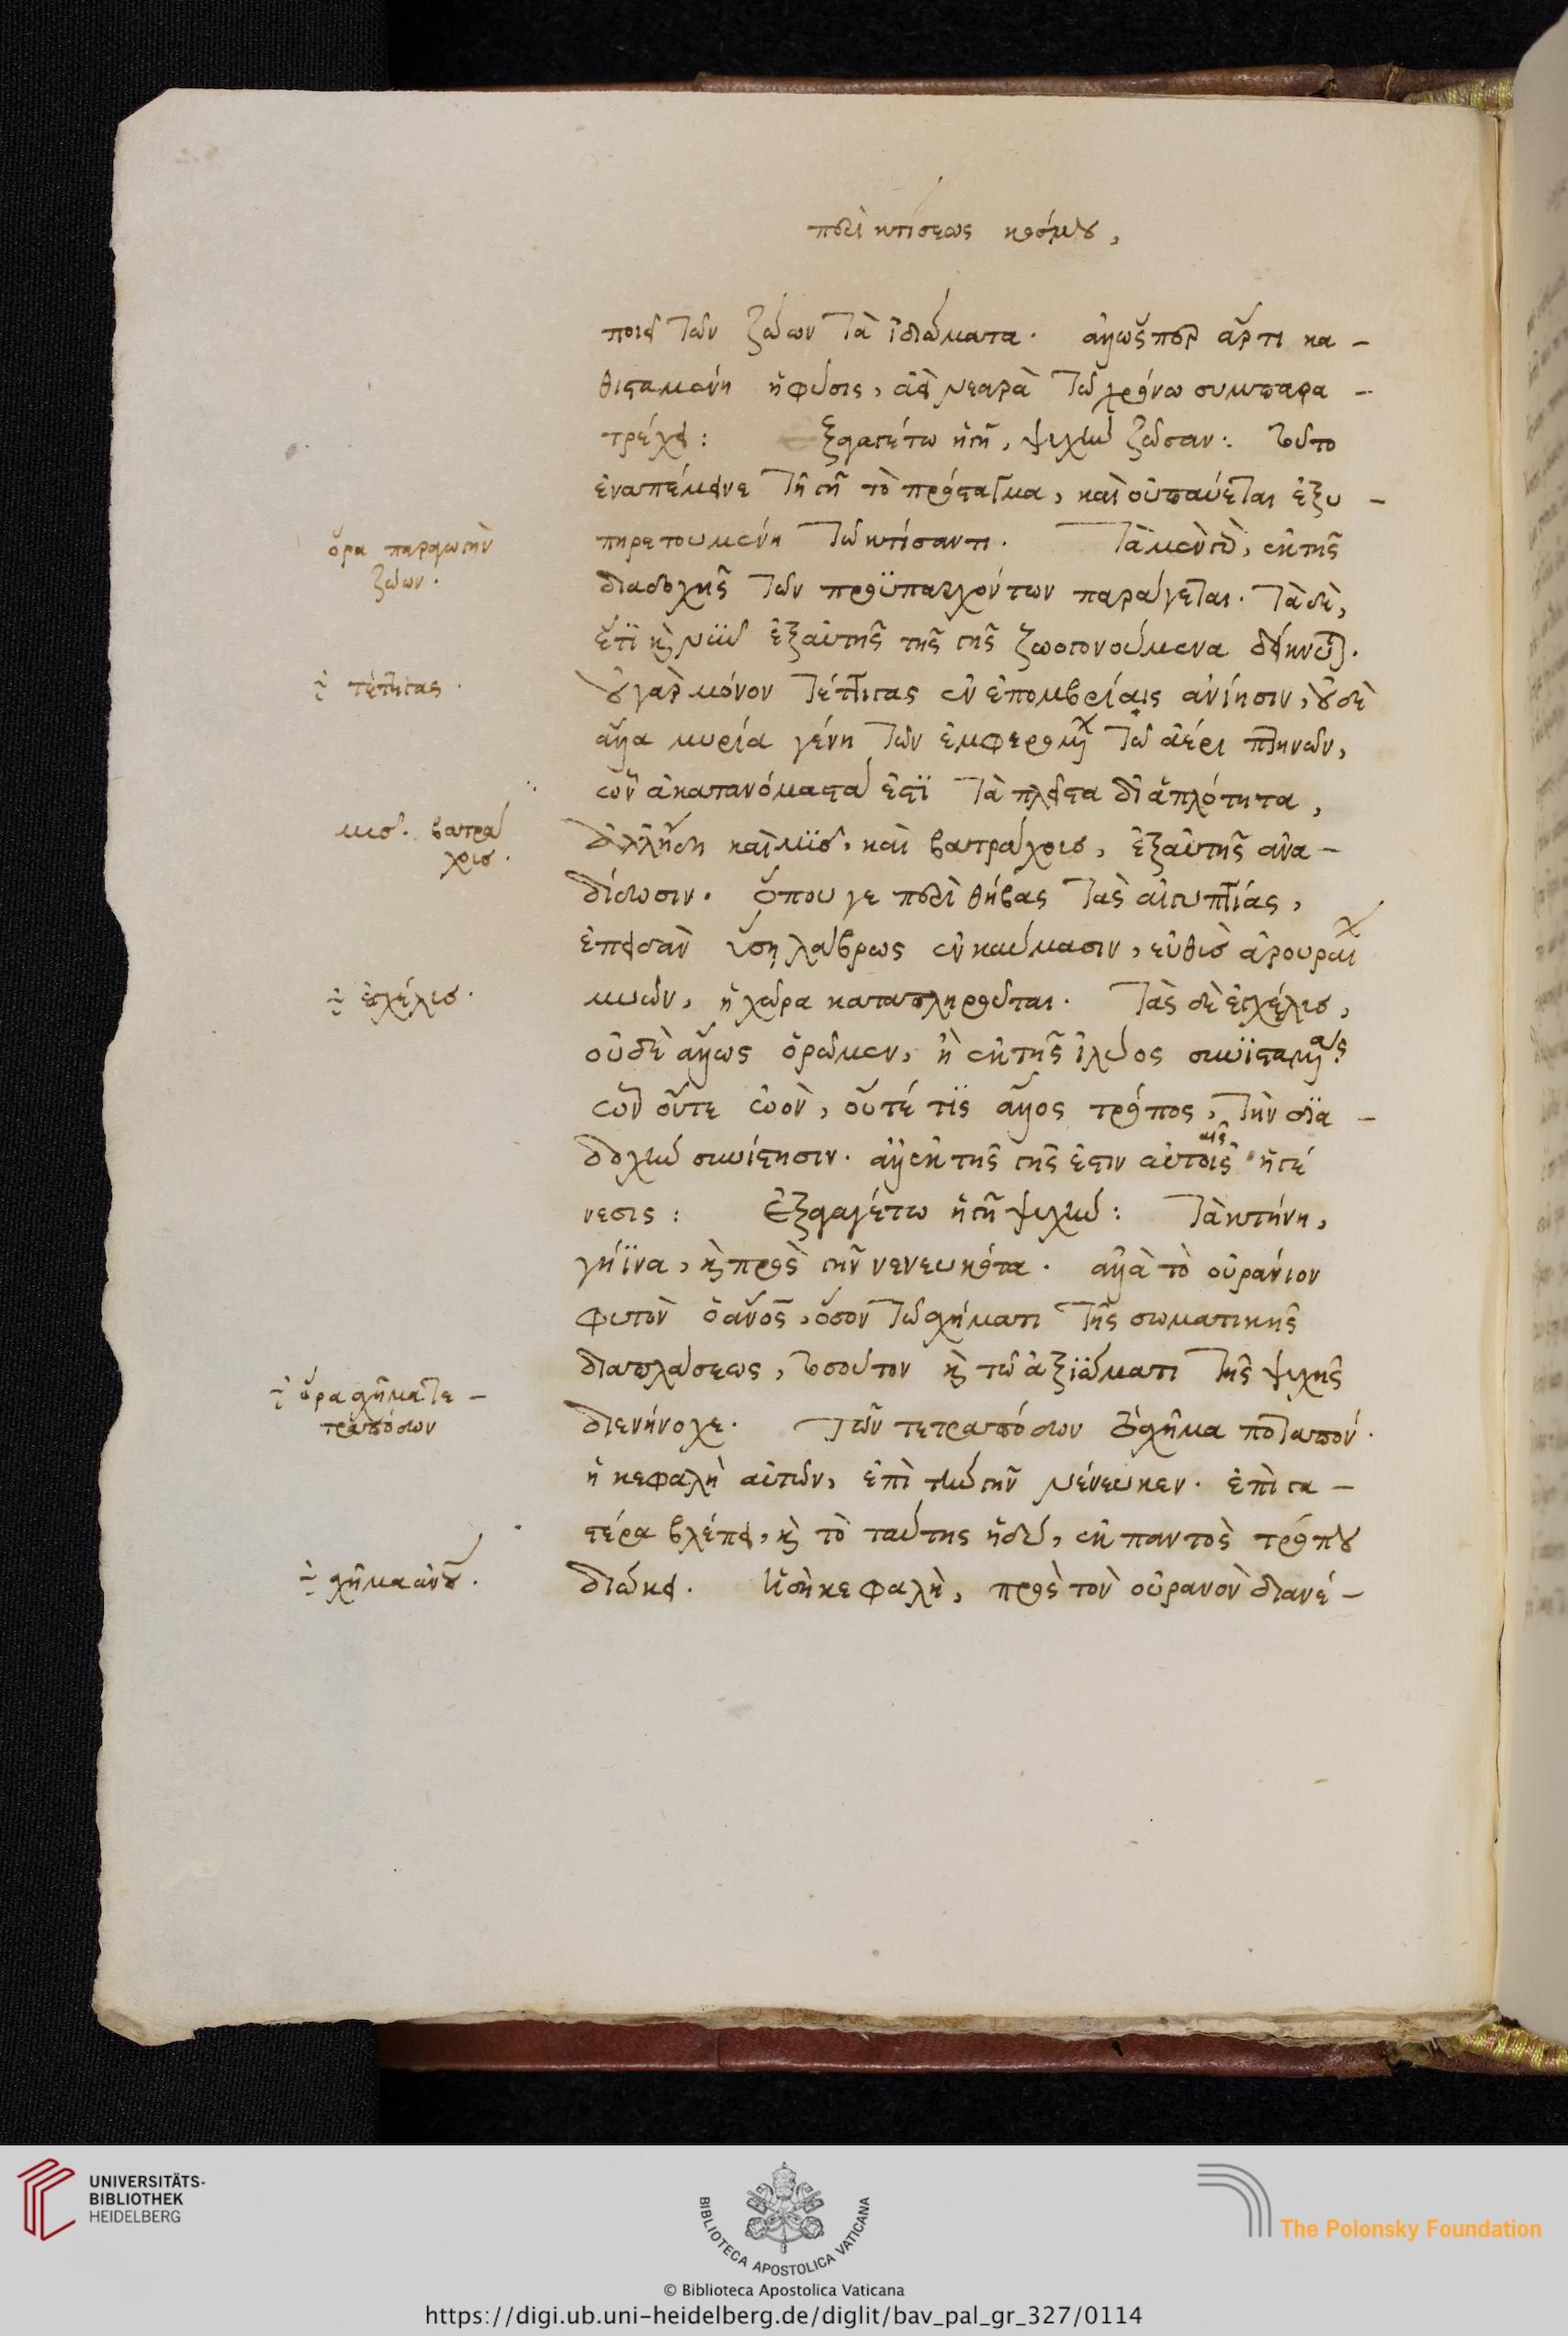 περὶ κτίσεως κόσμου,
ποιεῖ τῶν ζώων τὰ ἰδιώματα. ἀλλ' ὥσπερ ἄρτι κα-
θισταμένη ἡ φύσις, ἀεὶ νεαρὰ τῶ χρόνω συμπαρα-
τρέχει: ἐξαγαγέτω ἡ γῆ, ψυχὴν ζῶσαν: τοῦτο
ἐναπέμεινε τῆ γῆ τὸ πρόσταγμα, καὶ οὐ παύεται ἐξυ-
πηρετουμένη τῶ κτίσαντι. Τὰ μὲν γὰρ, ἐκ τῆς
διαδοχῆς τῶν προϋπαρχόντων παράγεται. τὰ δὲ,
ἔτι καὶ νῦν ἐξ αὐτῆς τῆς γῆς ζωογονούμενα δείκνυται.
οὐ γὰρ μόνον τέττιγας ἐν ἐπομβρίαις ἀνίησιν, οὐδὲ
ἄλλα μυρία γένη τῶν ἐμφερομένων τῶ ἀέρι πτηνῶν,
ὧν ἀκατανόμαστά ἐστι τὰ πλεῖστα δι' ἁπλότητα,
ἀλλ' ἤδη καὶ μῦς, καὶ βατράχοις, ἐξ αὐτῆς ἀνα-
δίδωσιν. ὅπου γε περὶ θήβας τὰς αἰγυπτίας,
ἐπειδὰν ὕση λάβρως ἐν καύμασιν, εὐθὺς ἀρουραίων
μυῶν, ἡ χώρα καταπληροῦται. Τὰς δὲ ἐγχέλεις,
οὐδὲ ἄλλως ὁρῶμεν, ἢ ἐκ τῆς ἰλύος συνϊσταμένας.
ὧν οὔτε ὠὸν, οὔτέ τις ἄλλος τρόπος, τὴν δια-
δοχὴν συνίστησιν. ἀλλ' ἐκ τῆς γῆς ἐστιν αὐτοῖς αῖς ἡ γέ
νεσις: Ἐξαγαγέτω ἡ γῆ ψυχὴν: Τὰ κτήνη,
γήϊνα, καὶ πρὸς γῆν νενευκότα. ἀλλὰ τὸ οὐράνιον
φυτὸν ὁ ἄνθρωπος, ὅσον τῶ σχήματι τῆς σωματικῆς
διαπλάσεως, τοσοῦτον καὶ τῶ ἀξιώματι τῆς ψυχῆς
διενήνοχε. τῶν τετραπόδων τὸ σχῆμα ποταπόν.
ἡ κεφαλὴ αὐτῶν, ἐπὶ τὴν γῆν νένευκεν. ἐπὶ γα-
στέρα βλέπει, καὶ τὸ ταύτης ἡδὺ, ἐκ παντὸς τρόπου
διώκει. Ἡ σὴ κεφαλὴ, πρὸς τὸν οὐρανὸν διανέ-
ὅρα παραγωγὴν
ζώων.
τέττιγας.
μυσ. βατρά
χοισ.
ἐγχέλεισ.
ὅρα σχῆμα τε-
τραπόδων
σχῆμα ἀνθρώπου.
UNIVERSITÄTS-
BIBLIOTHEK
HEIDELBERG
BIBLIOTECA APOSTOLICA VATICANA
The Polonsky Foundation
© Biblioteca Apostolica Vaticana
https://digi.ub.uni-heidelberg.de/diglit/bav_pal_gr_327/0114